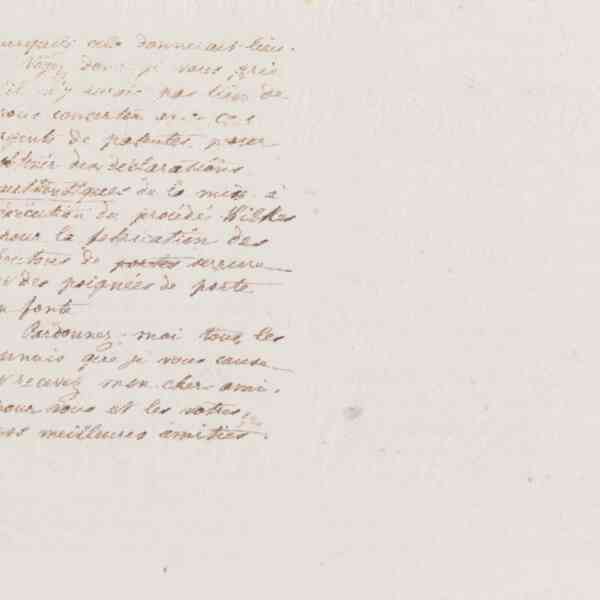 auxquels cela donnerait lieu.
Voyez donc je vous prie
s'il n'y aurait pas lieu de
vous concerter avec ces
agents de patentes pour
obtenir des déclarations
authentiques de la mise à
exécution du procédé Wilkes
pour la fabrication des
boutons de portes serrure
et des poignées de porte
en fonte
Pardonnez-moi tous les
ennuis que je vous cause
et recevez mon cher ami,
pour vous et les votres,
mes meilleures amitiés.